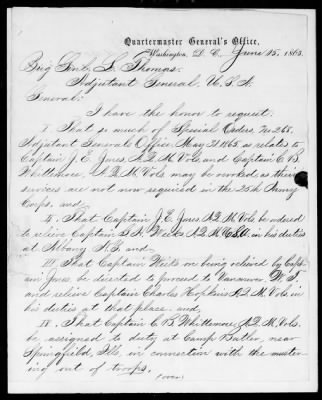 Quartermaster General's Office,
Washington, D. C., June 15, 1865.
Brig. Genl. L. Thomas.
Adjutant General, U. S. A.
General:
I have the honor to request.
I. That so much of Special Orders No 265.
Adjutant General Office May 31 1865 as relates to
Captain J. E. Jones A.Q.M. Vols, and Captain C. B.
Whittemore, A.Q.M. Vols may be revoked as their
services are not now required in the 25th Army
Corps, and,
II. That Captain J. E. Jones A.Q.M. Vols be ordered
to relieve Captain Weeks A.Q.M. U.S.A. in his duties
at Albany N.Y. and,
III That Captain on being relieved by Cap-
tain Jones be directed to proceed to Vancouver W. T.
and relieve Captain Charles Hopkins A.Q.M. Vols. in
his duties at that place. and,
IV. That Captain C. B. Whittemore, A.Q.M. Vols.
be assigned to duty at Camp Butler, near
Springfield, Ills. in connection with the muster-
ing out of troops.
(over)